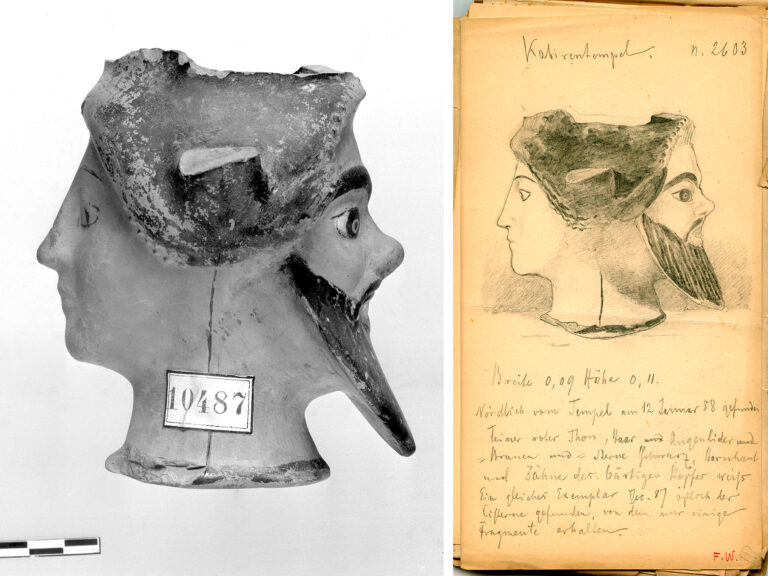 10487
Kabirentempel. n. 2603
Breite 0,09 Höhe 0,11.
Nördlich vom Tempel am 12 Januar 88 gefunden
feiner roter Thon, Haar und Augenlider und
Brauen und Sterne schwarz, Hornhaut
und Zähne des bärtigen Kopfes weiß
Ein gleiches Exemplar Dec. 87 östlich der
Cisterne gefunden, von dem nur einige
Fragmente erhalten.
F.W.